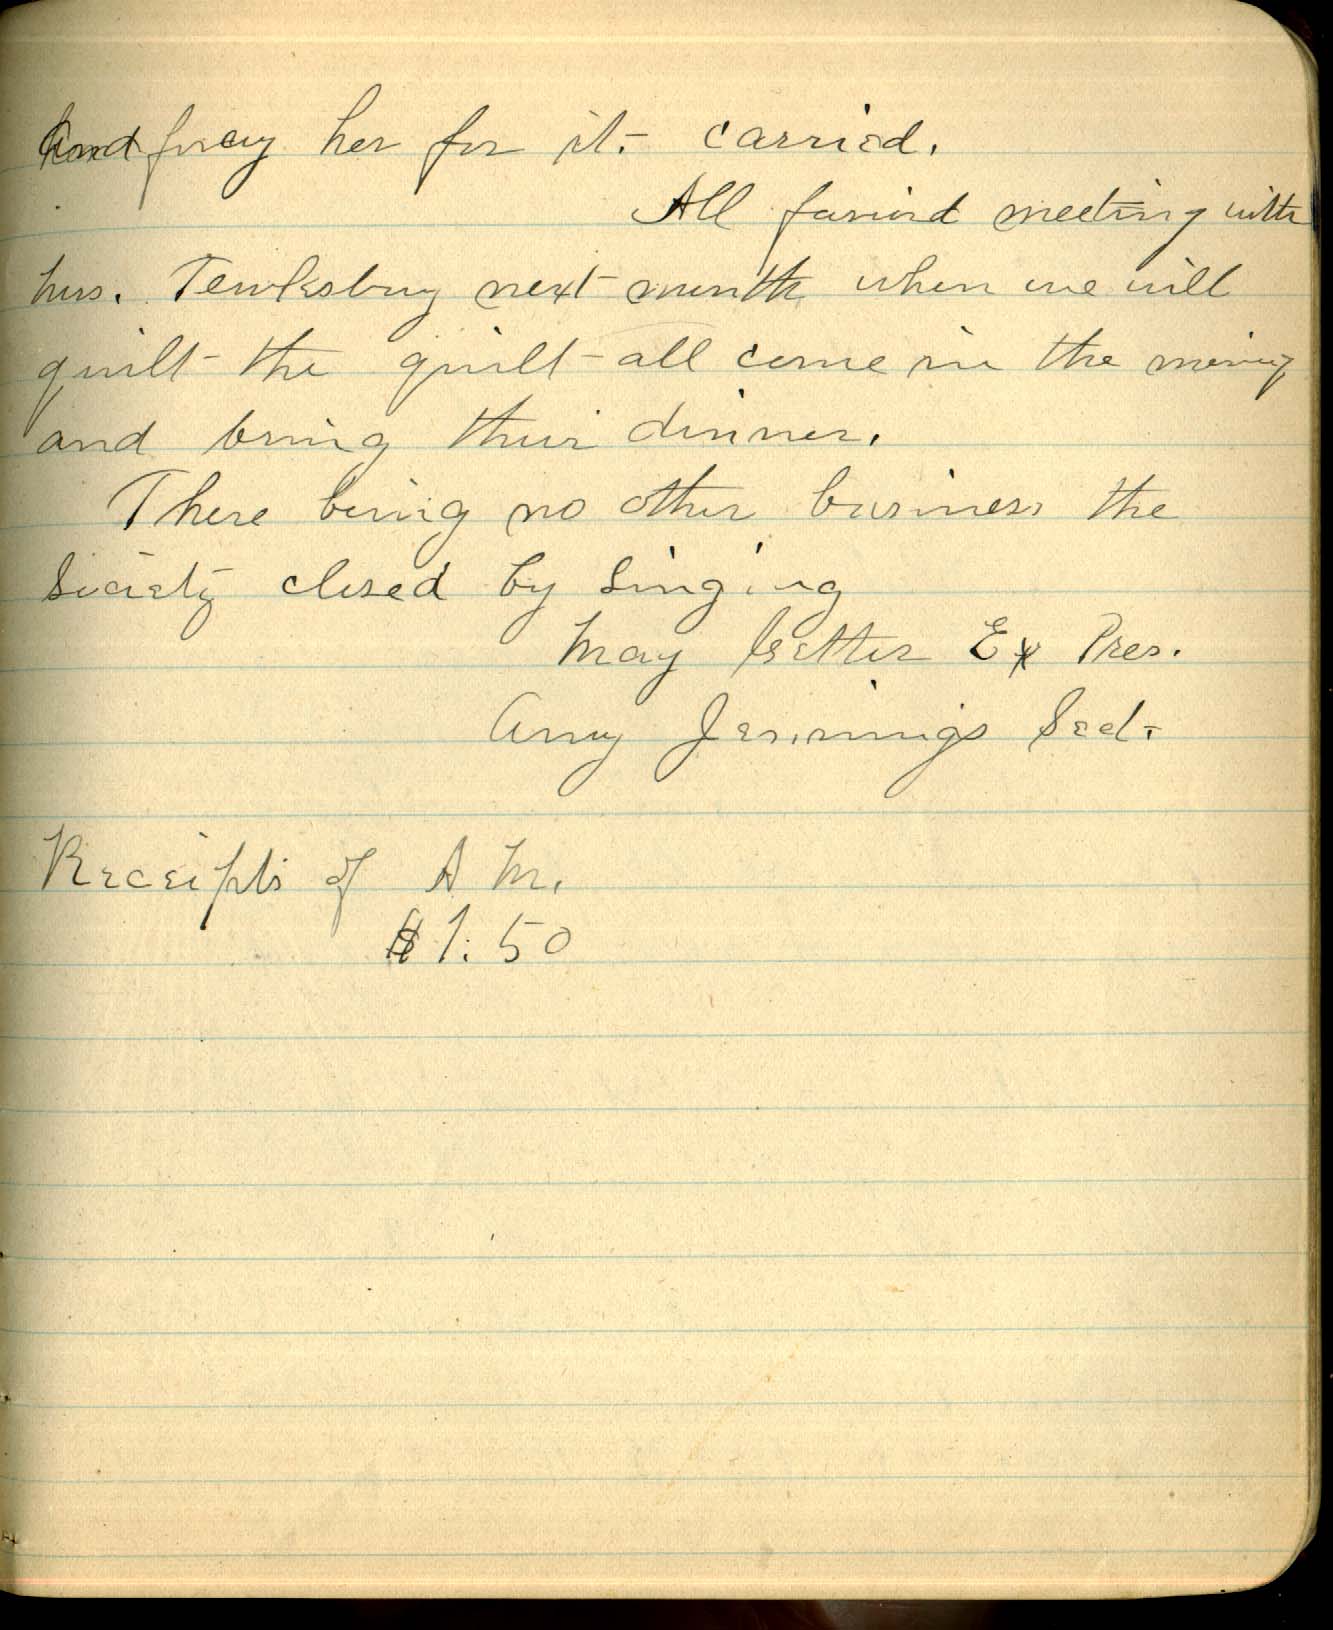 and pay her for it. carried.
All favord meeting with
Mrs. Tewksbury next month when we will
quilt the quilt all come in the morning
and bring their dinner.
There being no other business the
Society closed by Singing
May Getter Ex Pres.
Amy Jennings Sect.
Receipts of A M.
$1.50